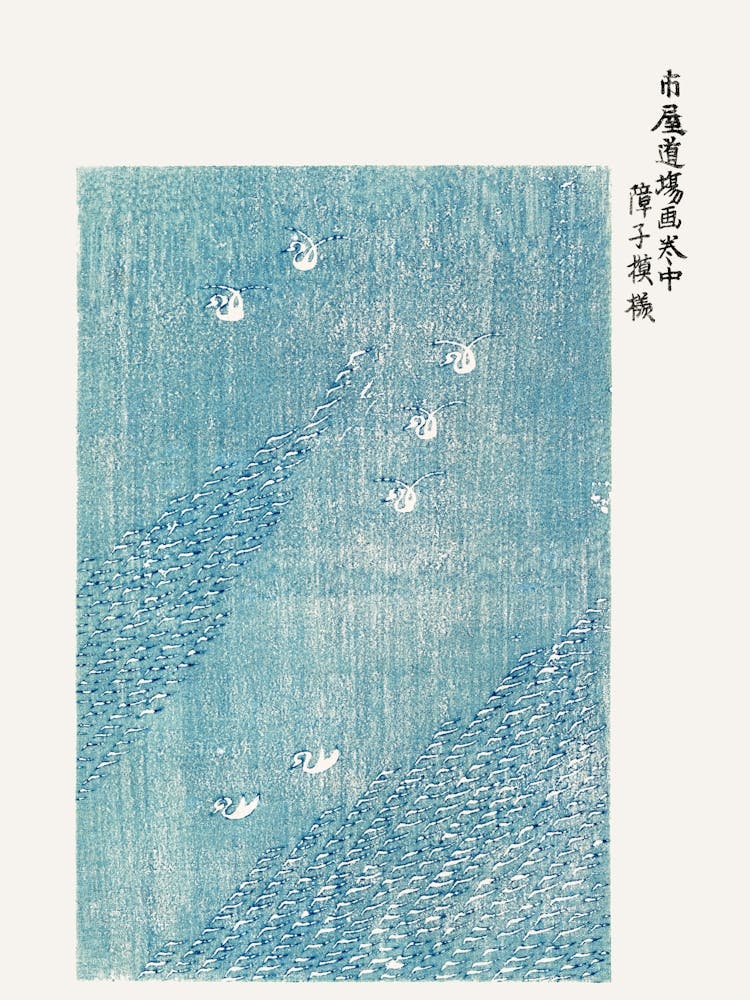 市屋道場画巻中
障子摸様